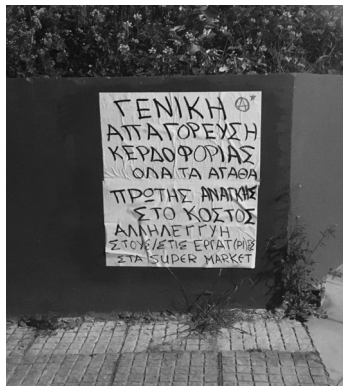 ΓΕΝΙΚΗ Ⓐ*
ΑΠΑΓΟΡΕΥΣΗ
ΚΕΡΔΟΦΟΡΙΑΣ
ΟΛΑ ΤΑ ΑΓΑΘΑ
ΠΡΩΤΗΣ ΑΝΑΓΚΗΣ
ΣΤΟ ΚΟΣΤΟΣ
ΑΛΛΗΛΕΓΓΥΗ
ΣΤΟΥΣ/ΣΤΙΣ
ΣΤΑ SUPER MARKET